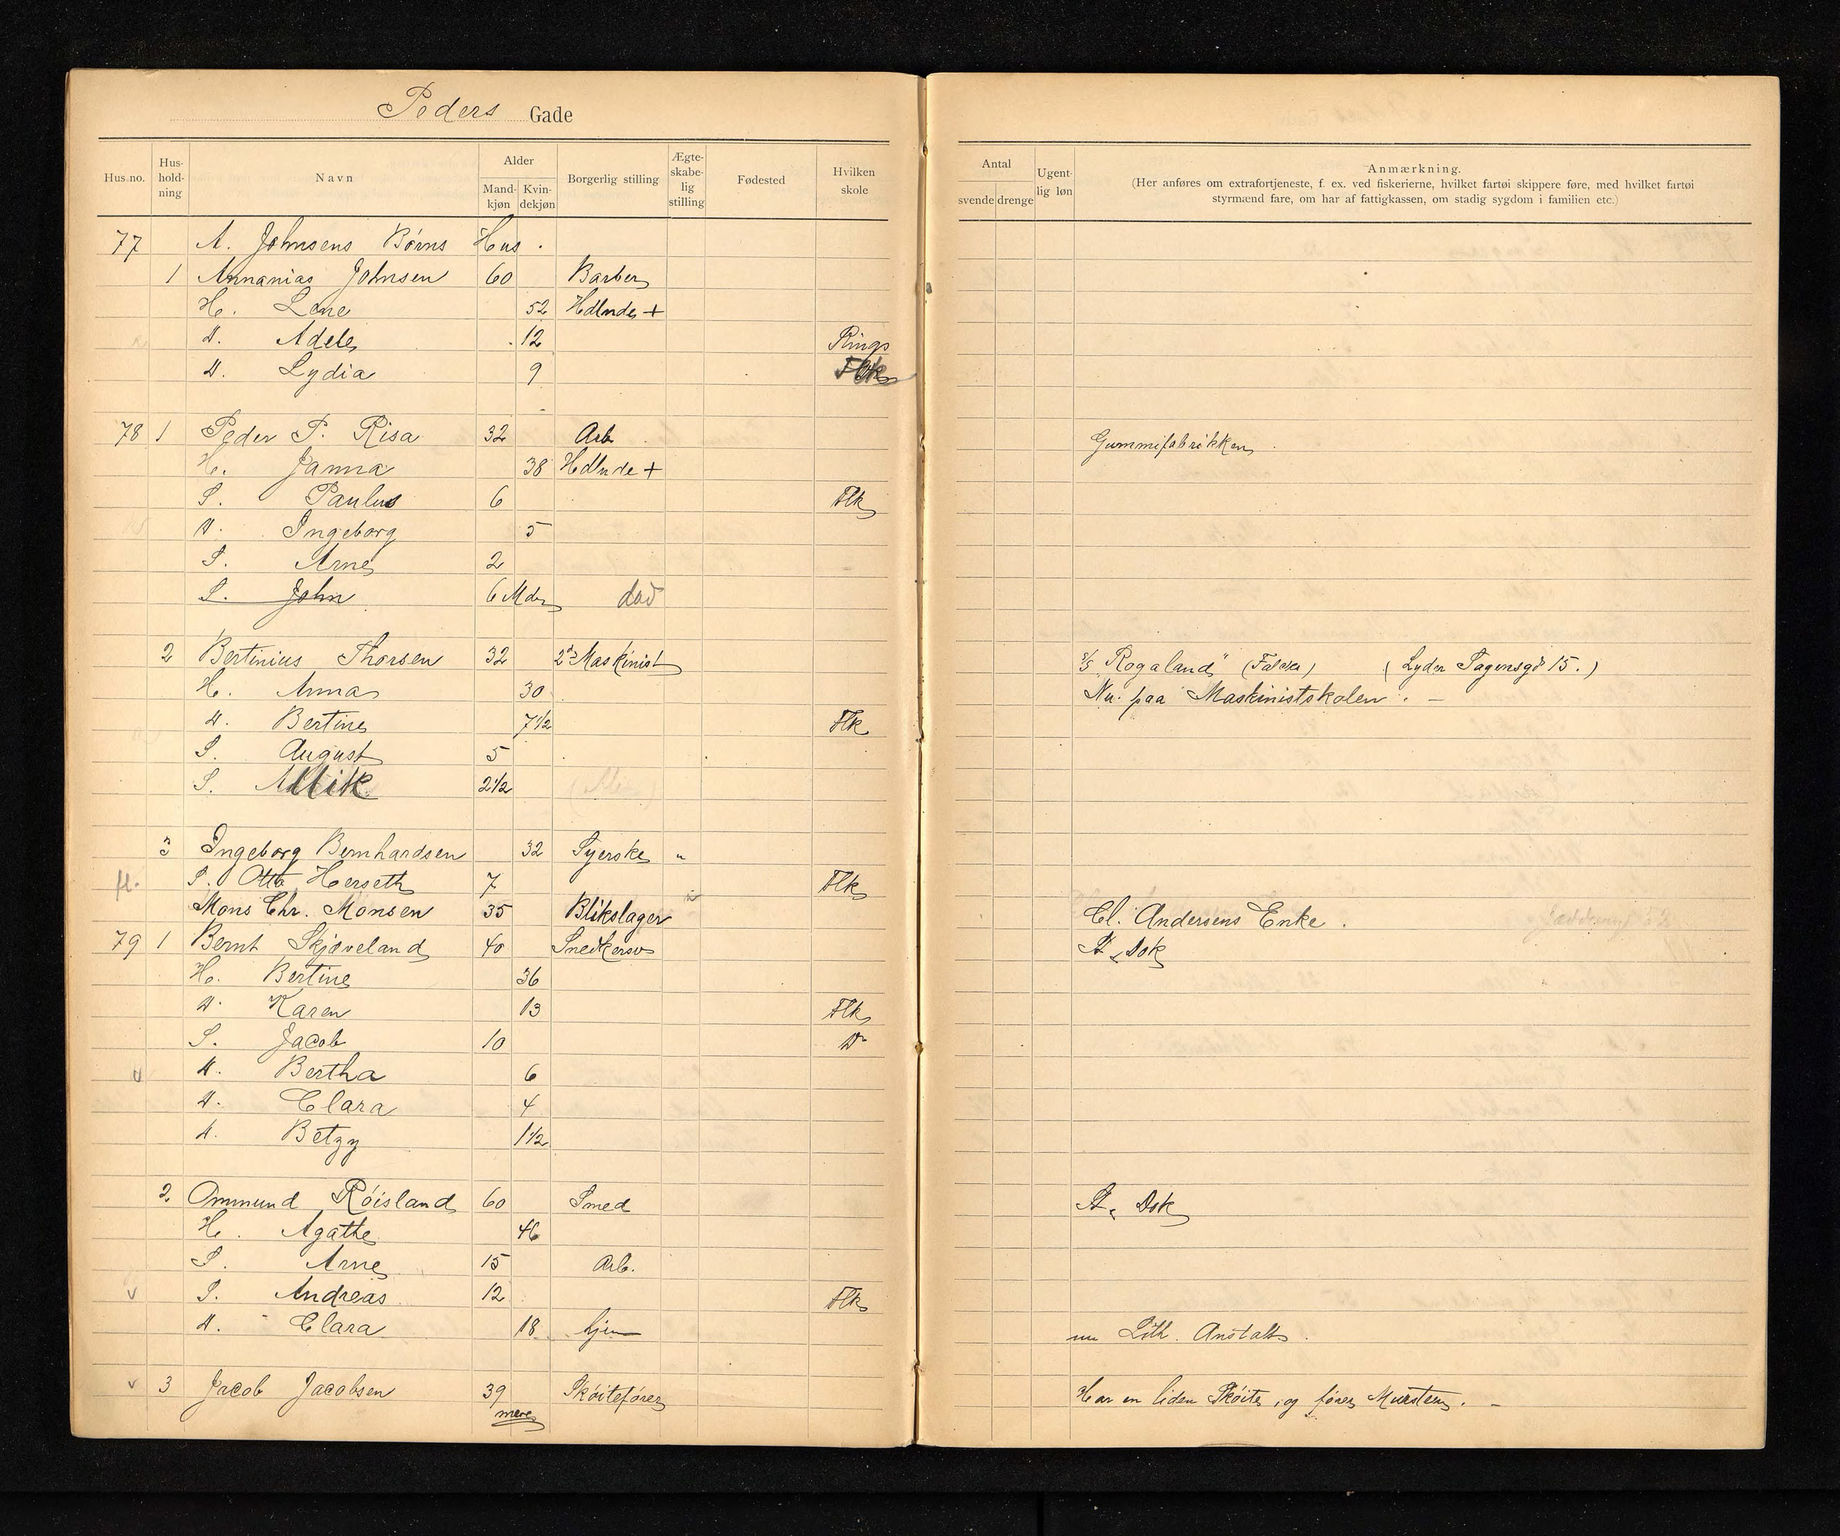 Peders Gade
Hus.no. Hus-hold-ning Navn Alder Mand-kjøn Kvin-dekjøn Borgerlig stilling Ægte-skabe-lig stilling Fødested Hvilken skole
77 A. Johnsens Børns Hus.
1 Annanias Johnsen 60 Barber
H. Lene 52 Hdlnde +
D. Adele 12 Rings
D. Lydia 9
78 1 Peder P. Risa 32 Arb
H. Janna 38 Hdlnde +
S. Paulus 6 Flk
D. Ingeborg 5
S. Arne 2
S. John 6 Mdr død
2 Bertinius Thorsen 32 2d Maskinist
H. Anna 30
D. Bertine 7 1/2 Flk
S. August 5
S. Allik 2 1/2
3 Ingeborg Bernhardsen 32 Syerske "
fl. S. Otto Herseth 7 Flk
Mons Chr. Monsen 35 Blikslager
79 1 Bernt Skjæveland 40 Snedkersv
H. Bertine 36
D. Karen 13 Flk
S. Jacob 10 Do
v D. Bertha 6
D. Clara 4
D. Betzy 1 1/2
2 Ommund Röisland 60 Smed
H. Agathe 46
S. Arne 15 Arb.
v S. Andreas 12 Flk
D. Clara 18 hjem
v 3 Jacob Jacobsen 39 Skøitefører
mere
Antal svende drenge Ugent-lig løn Anmærkning.
(Her anføres om extrafortjeneste, f. ex. ved fiskerierne, hvilket fartøi skippere føre, med hvilket fartøi
styrmænd fare, om har af fattigkassen, om stadig sygdom i familien etc.)
Gummifabrikken
S/S "Rogaland" (Falck) (Lyder Sagensgd 15.)
Nu paa Maskinistskolen. —
Cl. Andersens Enke.
St. Dok
St. Dok
nu Lith. Anstalt.
Har en liden Skøite, og fører Mursten. —